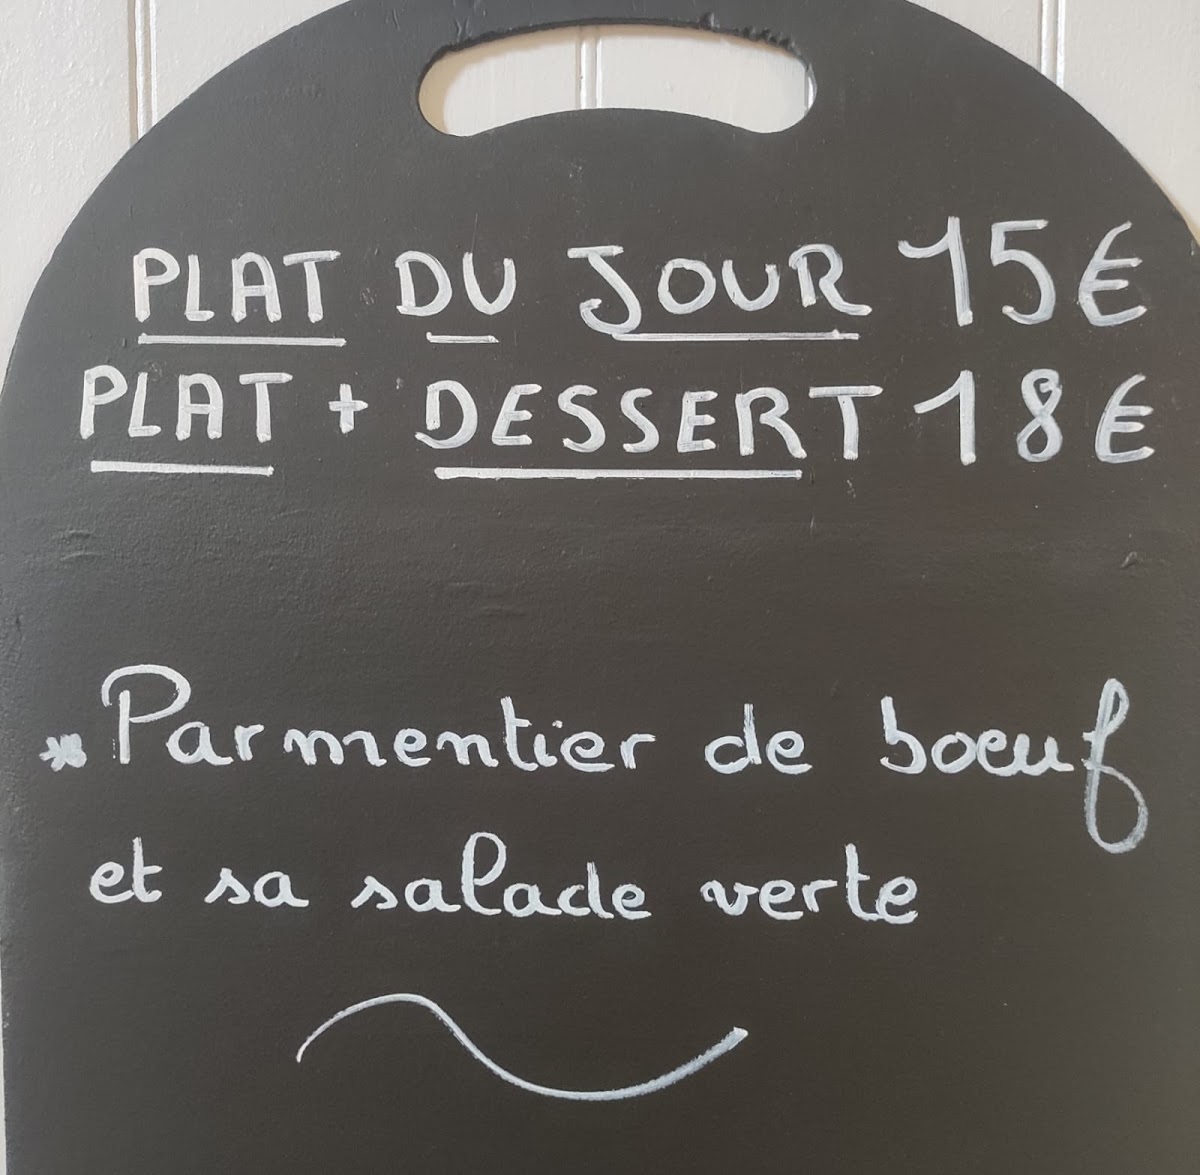 PLAT DU JOUR 15€
PLAT + DESSERT 18€
* Parmentier de boeuf
et sa salade verte